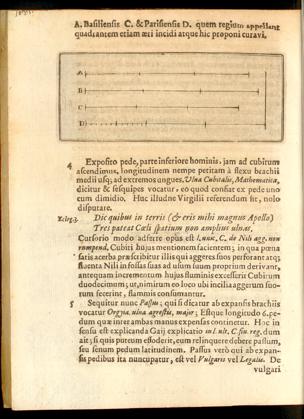 A. Basiliensis C. & Parisiensis D. quem regium appellant
quadrantem etiam æri incidi atque hic proponi curavi.
A
B
C
D
4 Exposito pede, parte inferiore hominis, jam ad cubitum
ascendimus, longitudinem nempe petitam à flexu brachii
medii usq; ad extremos ungues. Ulna Cubitalis, Mathematica,
dicitur & sesquipes vocatur, eo quod constat ex pede uno
cum dimidio. Huc illud ne Virgilii referendum sit, nolo
disputare.
Ecleg.3. Dic quibus in terris (& eris mihi magnus Apollo)
Tres pateat Cæli spatium non amplius ulnas.
Cursorio modo adferre opus est l. unic. C. de Nili agg. non
rumpend. Cubiti hujus mentionem facientem; in qua pœna
satis acerba præscribitur illis qui aggeres suos perforant atq;
fluenta Nili in fossas suas ad usum suum proprium derivant,
antequam incrementum hujus fluminis excesserit Cubitum
duodecimum; ut, nimirum eo loco ubi incilia aggerum suo-
rum fecerint, flammis consumantur.
5 Sequitur nunc Passus; qui si dicatur ab expansis brachiis
vocatur Orgya, ulna agrestis, major; Estque longitudo 6. pe-
dum quæ inter ambas manus expansas continetur. Hoc in
sensu est explicanda Caij explicatio in l. ult. C. fin. reg. dum
ait; si quis puteum effoderit, eum relinquere debere passum,
seu senum pedum latitudinem. Passus verò qui ab expan-
sis pedibus ita nuncupatur, est vel Vulgaris vel Legalis. De
vulgari